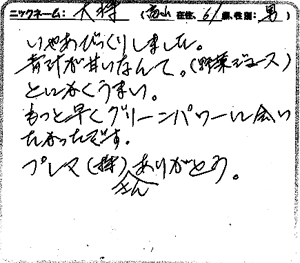 ニックネーム: 大将 (富山 在住、61歳、性別: 男)
いやあびっくりしました。
青汁が甘いなんて。(野菜ジュース)
とにかくうまい。
もっと早くグリーンパワーに会い
たかったです。
プレマ(株)さんありがとう。